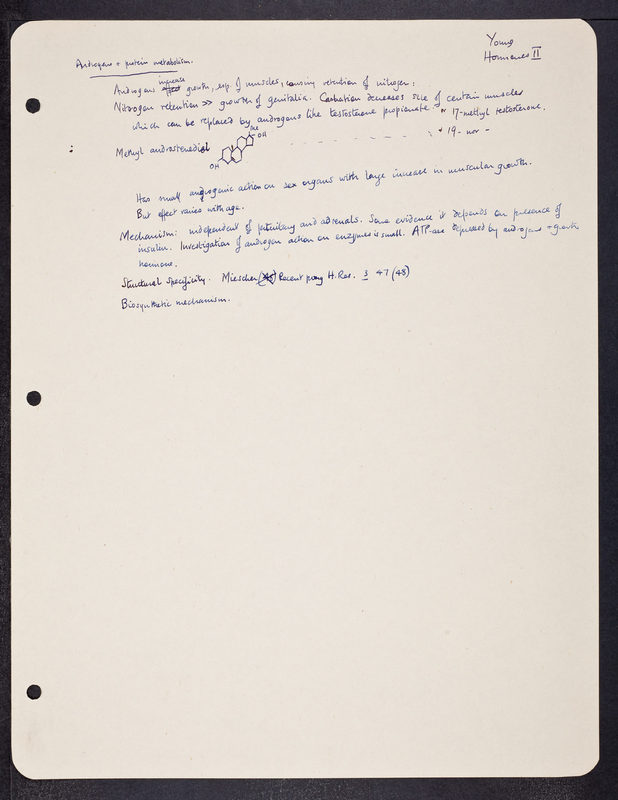 Young
Hormones II
Androgens + protein metabolism.
Androgens increase growth, esp. of muscles, causing retention of nitrogen:
Nitrogen retention >> growth of genitalia. Castration decreases size of certain muscles
which can be replaced by androgens like testosterone propionate. or 17-methyl testosterone.
: Methyl androstenediol Me OH OH ; + 19-nor -
Has small androgenic action on sex organs with large increase in muscular growth.
But effect varies with age.
Mechanism: independent of pituitary and adrenals. Some evidence it depends on presence of
insulin. Investigation of androgen action on enzymes is small. ATP-ase depressed by androgens + growth
hormone.
Structural Specificity. Miescher Recent prog H. Res. 3 47 (48)
Biosynthetic mechanism.